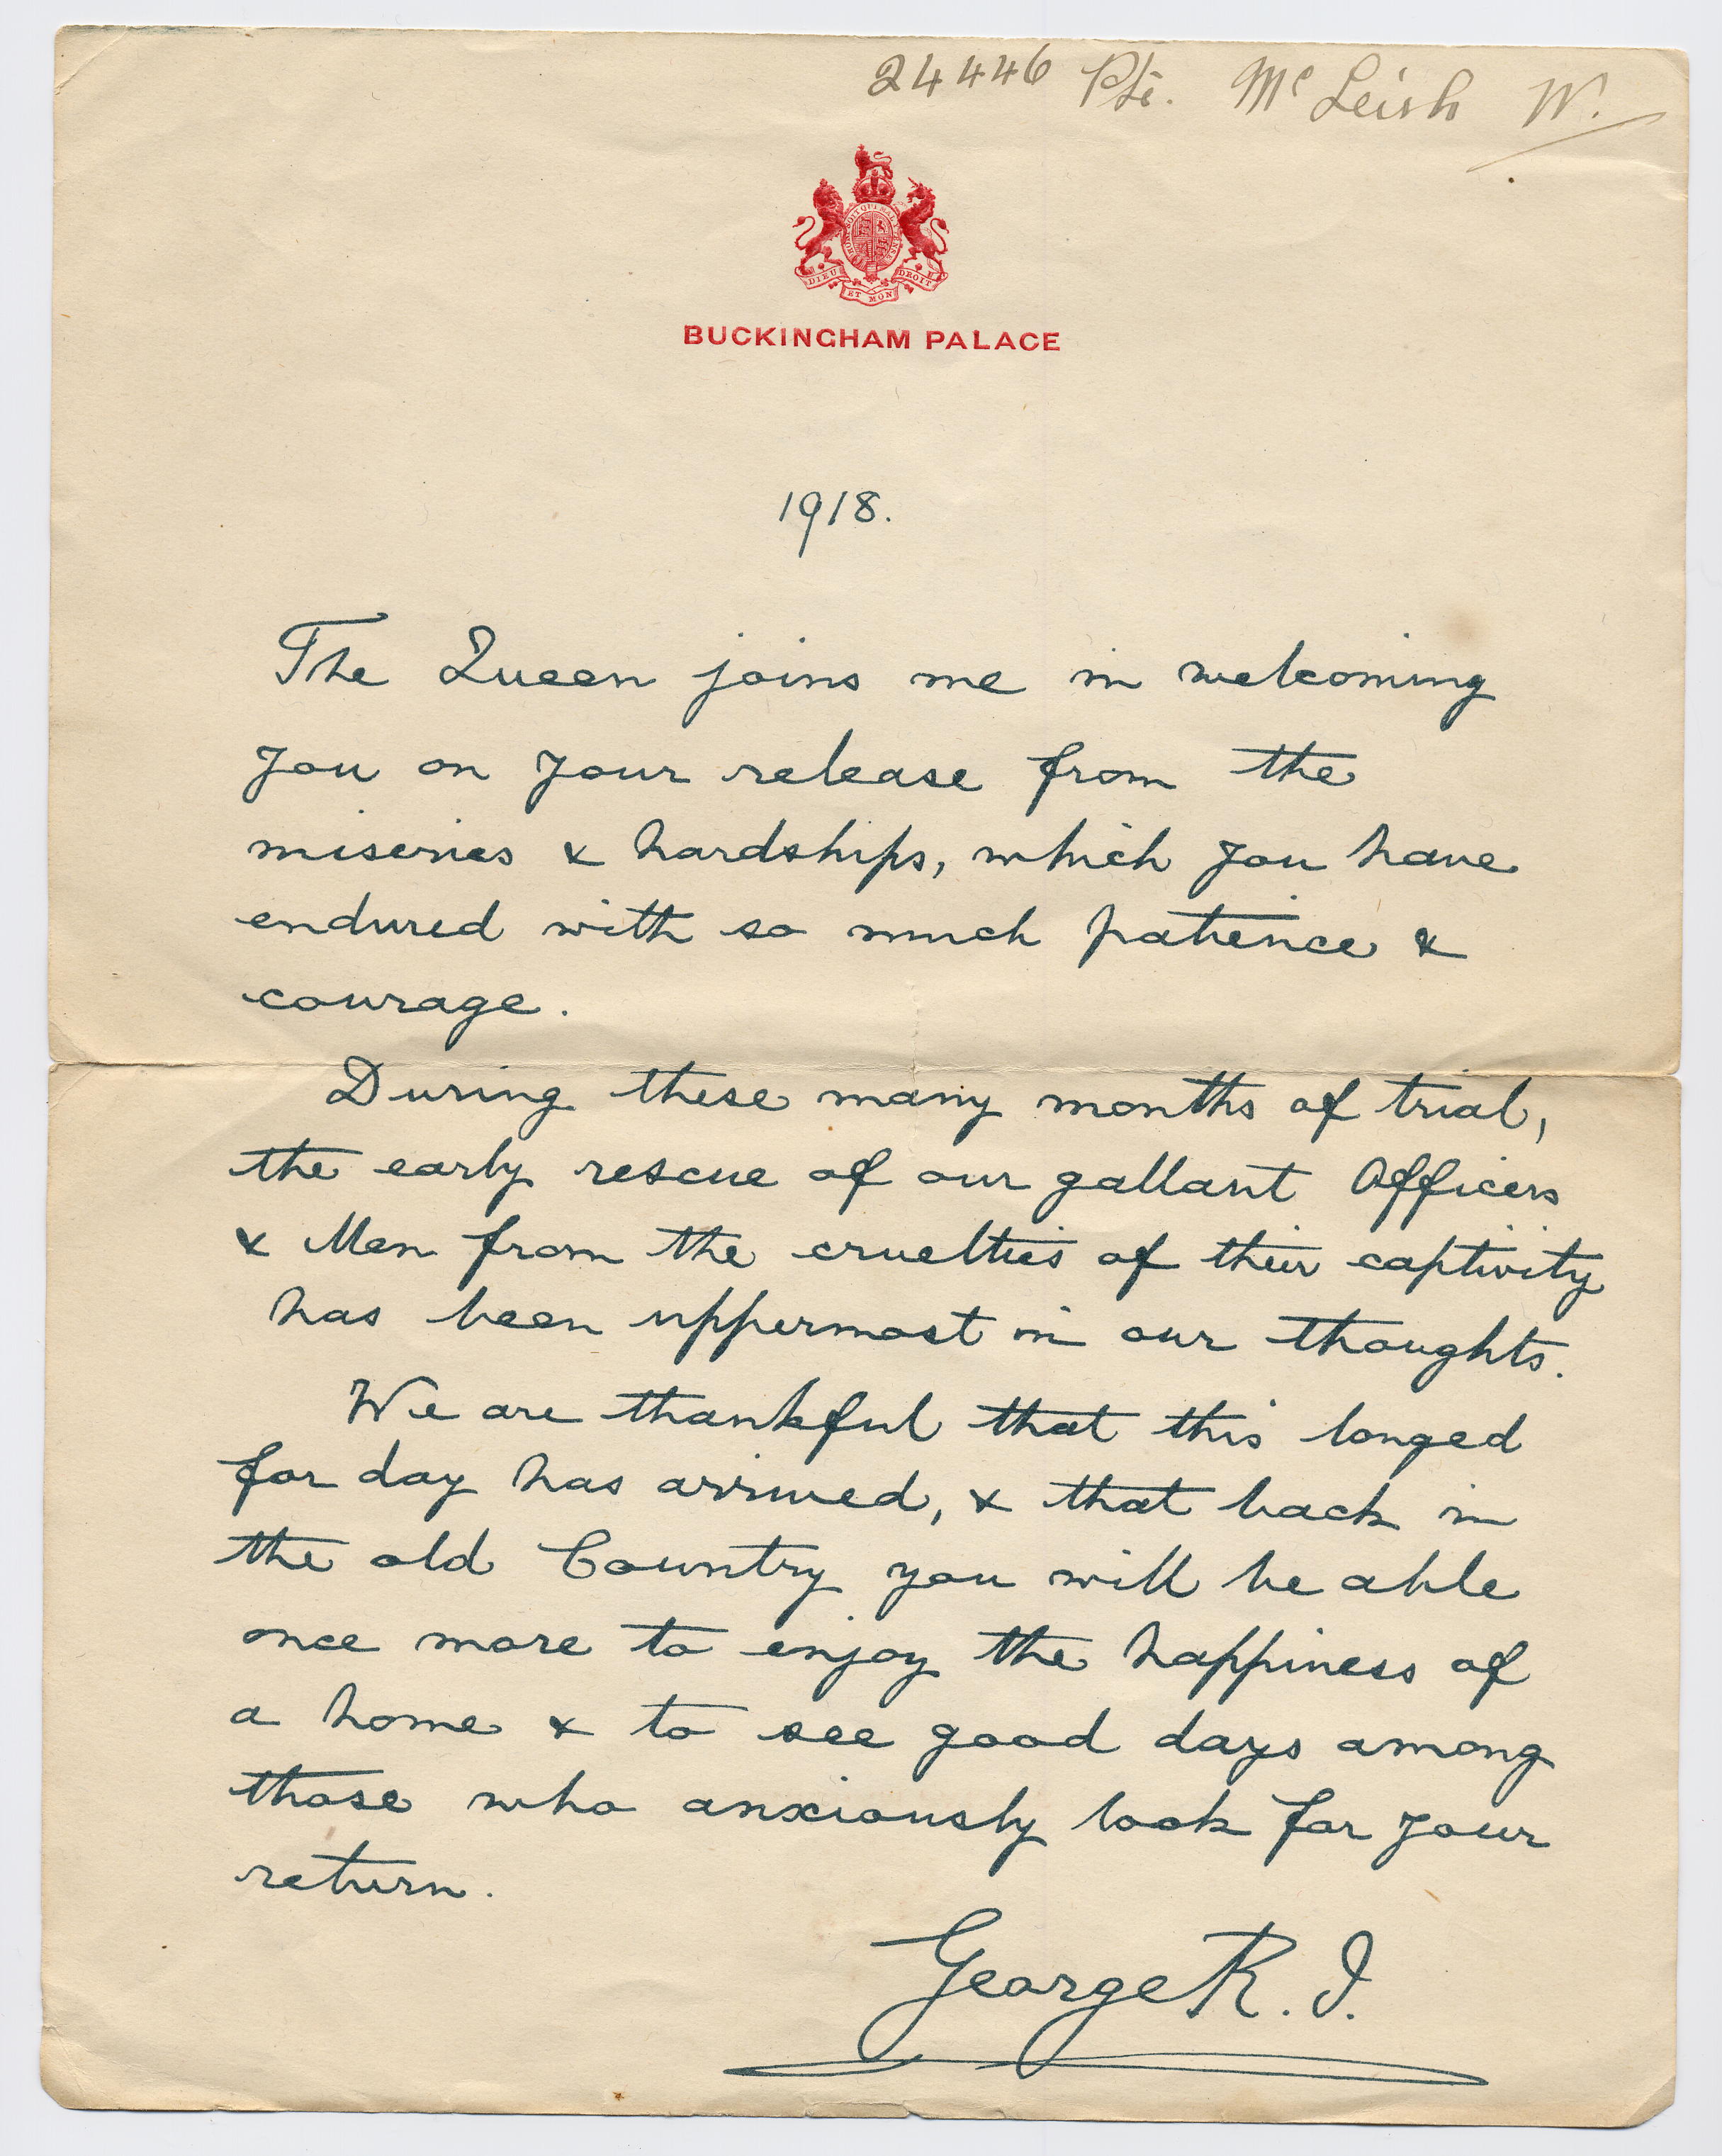 24446 Pte. McLeish W.
HONI SOIT QUI MAL Y PENSE
DIEU ET MON DROIT
BUCKINGHAM PALACE
1918.
The Queen joins me in welcoming
you on your release from the
miseries & hardships, which you have
endured with so much patience &
courage.
During these many months of trial,
the early rescue of our gallant Officers
& Men from the cruelties of their captivity
has been uppermost in our thoughts.
We are thankful that this longed
for day has arrived, & that back in
the old Country you will be able
once more to enjoy the happiness of
a home & to see good days among
those who anxiously look for your
return.
George R. I.